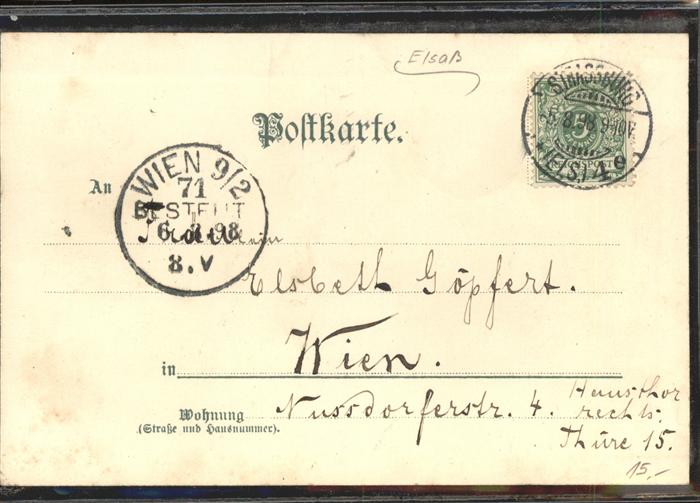 Elsaß
STRASSBURG
5.8.98 9-10V
* (ELS.) 4 g
REICHSPOST
5
Postkarte.
WIEN 9/2
71
BESTELLT
6.8.98
8.V
An Fräulein
Elsbeth Göpfert.
in Wien.
Wohnung
(Straße und Hausnummer).
Nussdorferstr. 4. Hausthor
rechts.
Thüre 15.
15,-